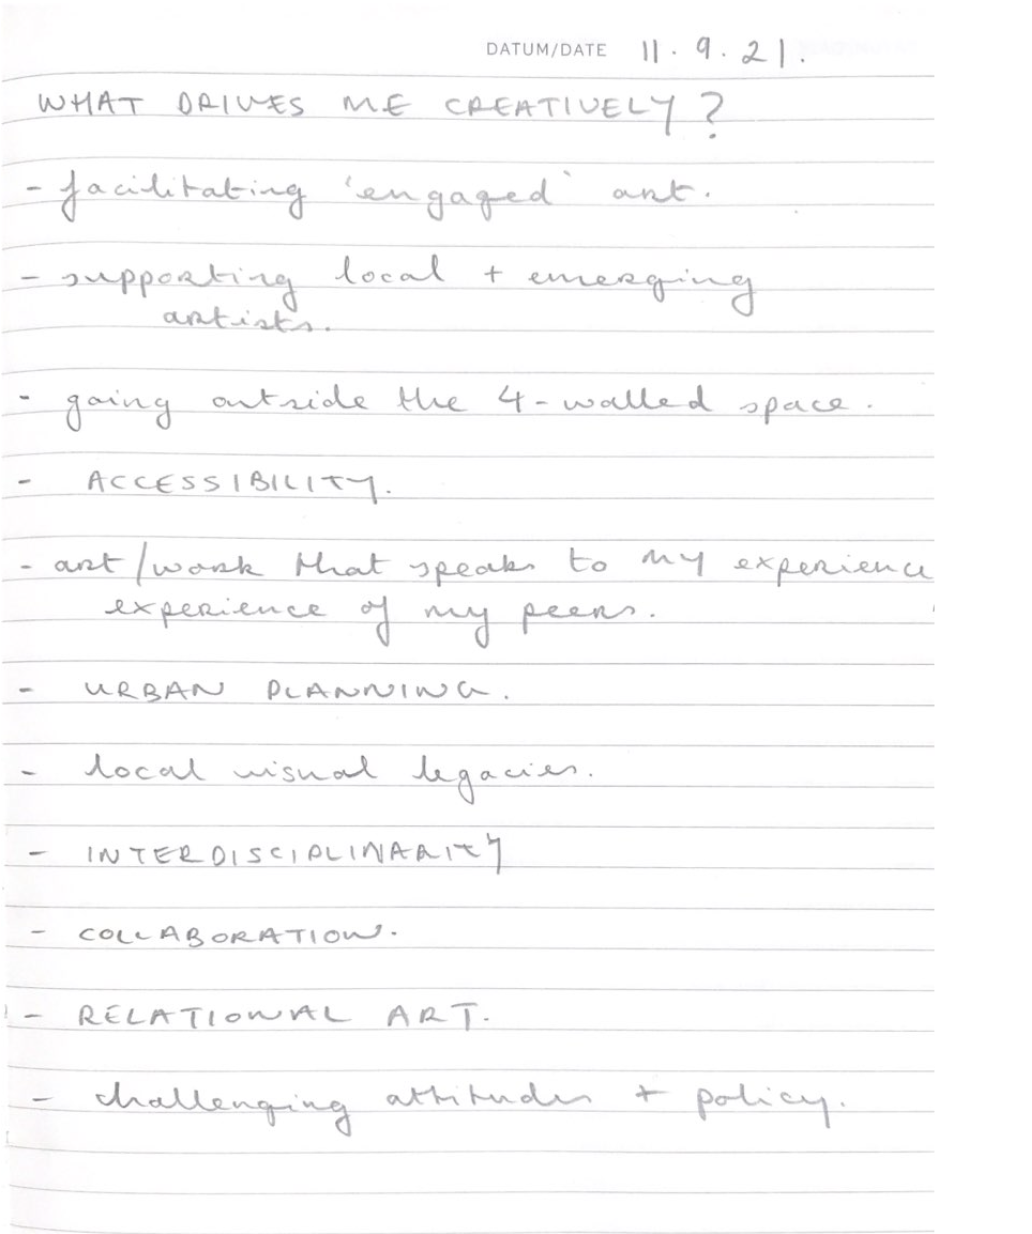 DATUM/DATE 11.9.21.
WHAT DRIVES ME CREATIVELY?
- facilitating 'engaged' art.
- supporting local + emerging
artists.
- going outside the 4-walled space.
- ACCESSIBILITY.
- art/work that speaks to my experience
experience of my peers.
- URBAN PLANNING.
- local visual legacies.
- INTERDISCIPLINARITY
- COLLABORATION.
- RELATIONAL ART.
- challenging attitudes + policy.